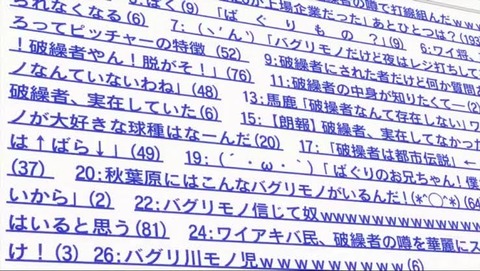 の噂で打線組んだｗｗ
られなくなる(6)　6:ばく(9)　「 上場企業だった」あとひとつは？(193
ろってピッチャーの特徴 (52)　7: (ヽ'ん')「バグリモノだけど夜はレジ打ちして
！破繰者やん！脱がそ！」(76)　9:破繰者にされた者だけど何か質問あ
モノなんていないわね」(48)　11:破繰者の中身が知りたくて―(2)
破繰者、実在していた(6)　13:馬鹿「破繰者なんて存在しない」ワ
ノが大好きな球種はなーんだ(20)　15:【朗報】破繰者、実在してなかっ
は↑ばら↓」(49)　17:「破操者は都市伝説」←
(37)　19: (´・ω・｀)「ばぐりのお兄ちゃん！僕
20:秋葉原にはこんなバグリモノがいるんだ！(*^◯^*)(64
いから」(2)　22:バグリモノ信じて奴ｗｗｗｗｗｗｗｗｗ
はいると思う(81)　24:ワイアキバ民、破繰者の噂を華麗にス
け！(3)　26:バグリ川モノ児ｗｗｗｗｗｗｗｗｗ(6)